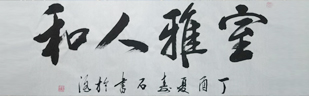 室雅人和
丁酉夏嘉石書於洛